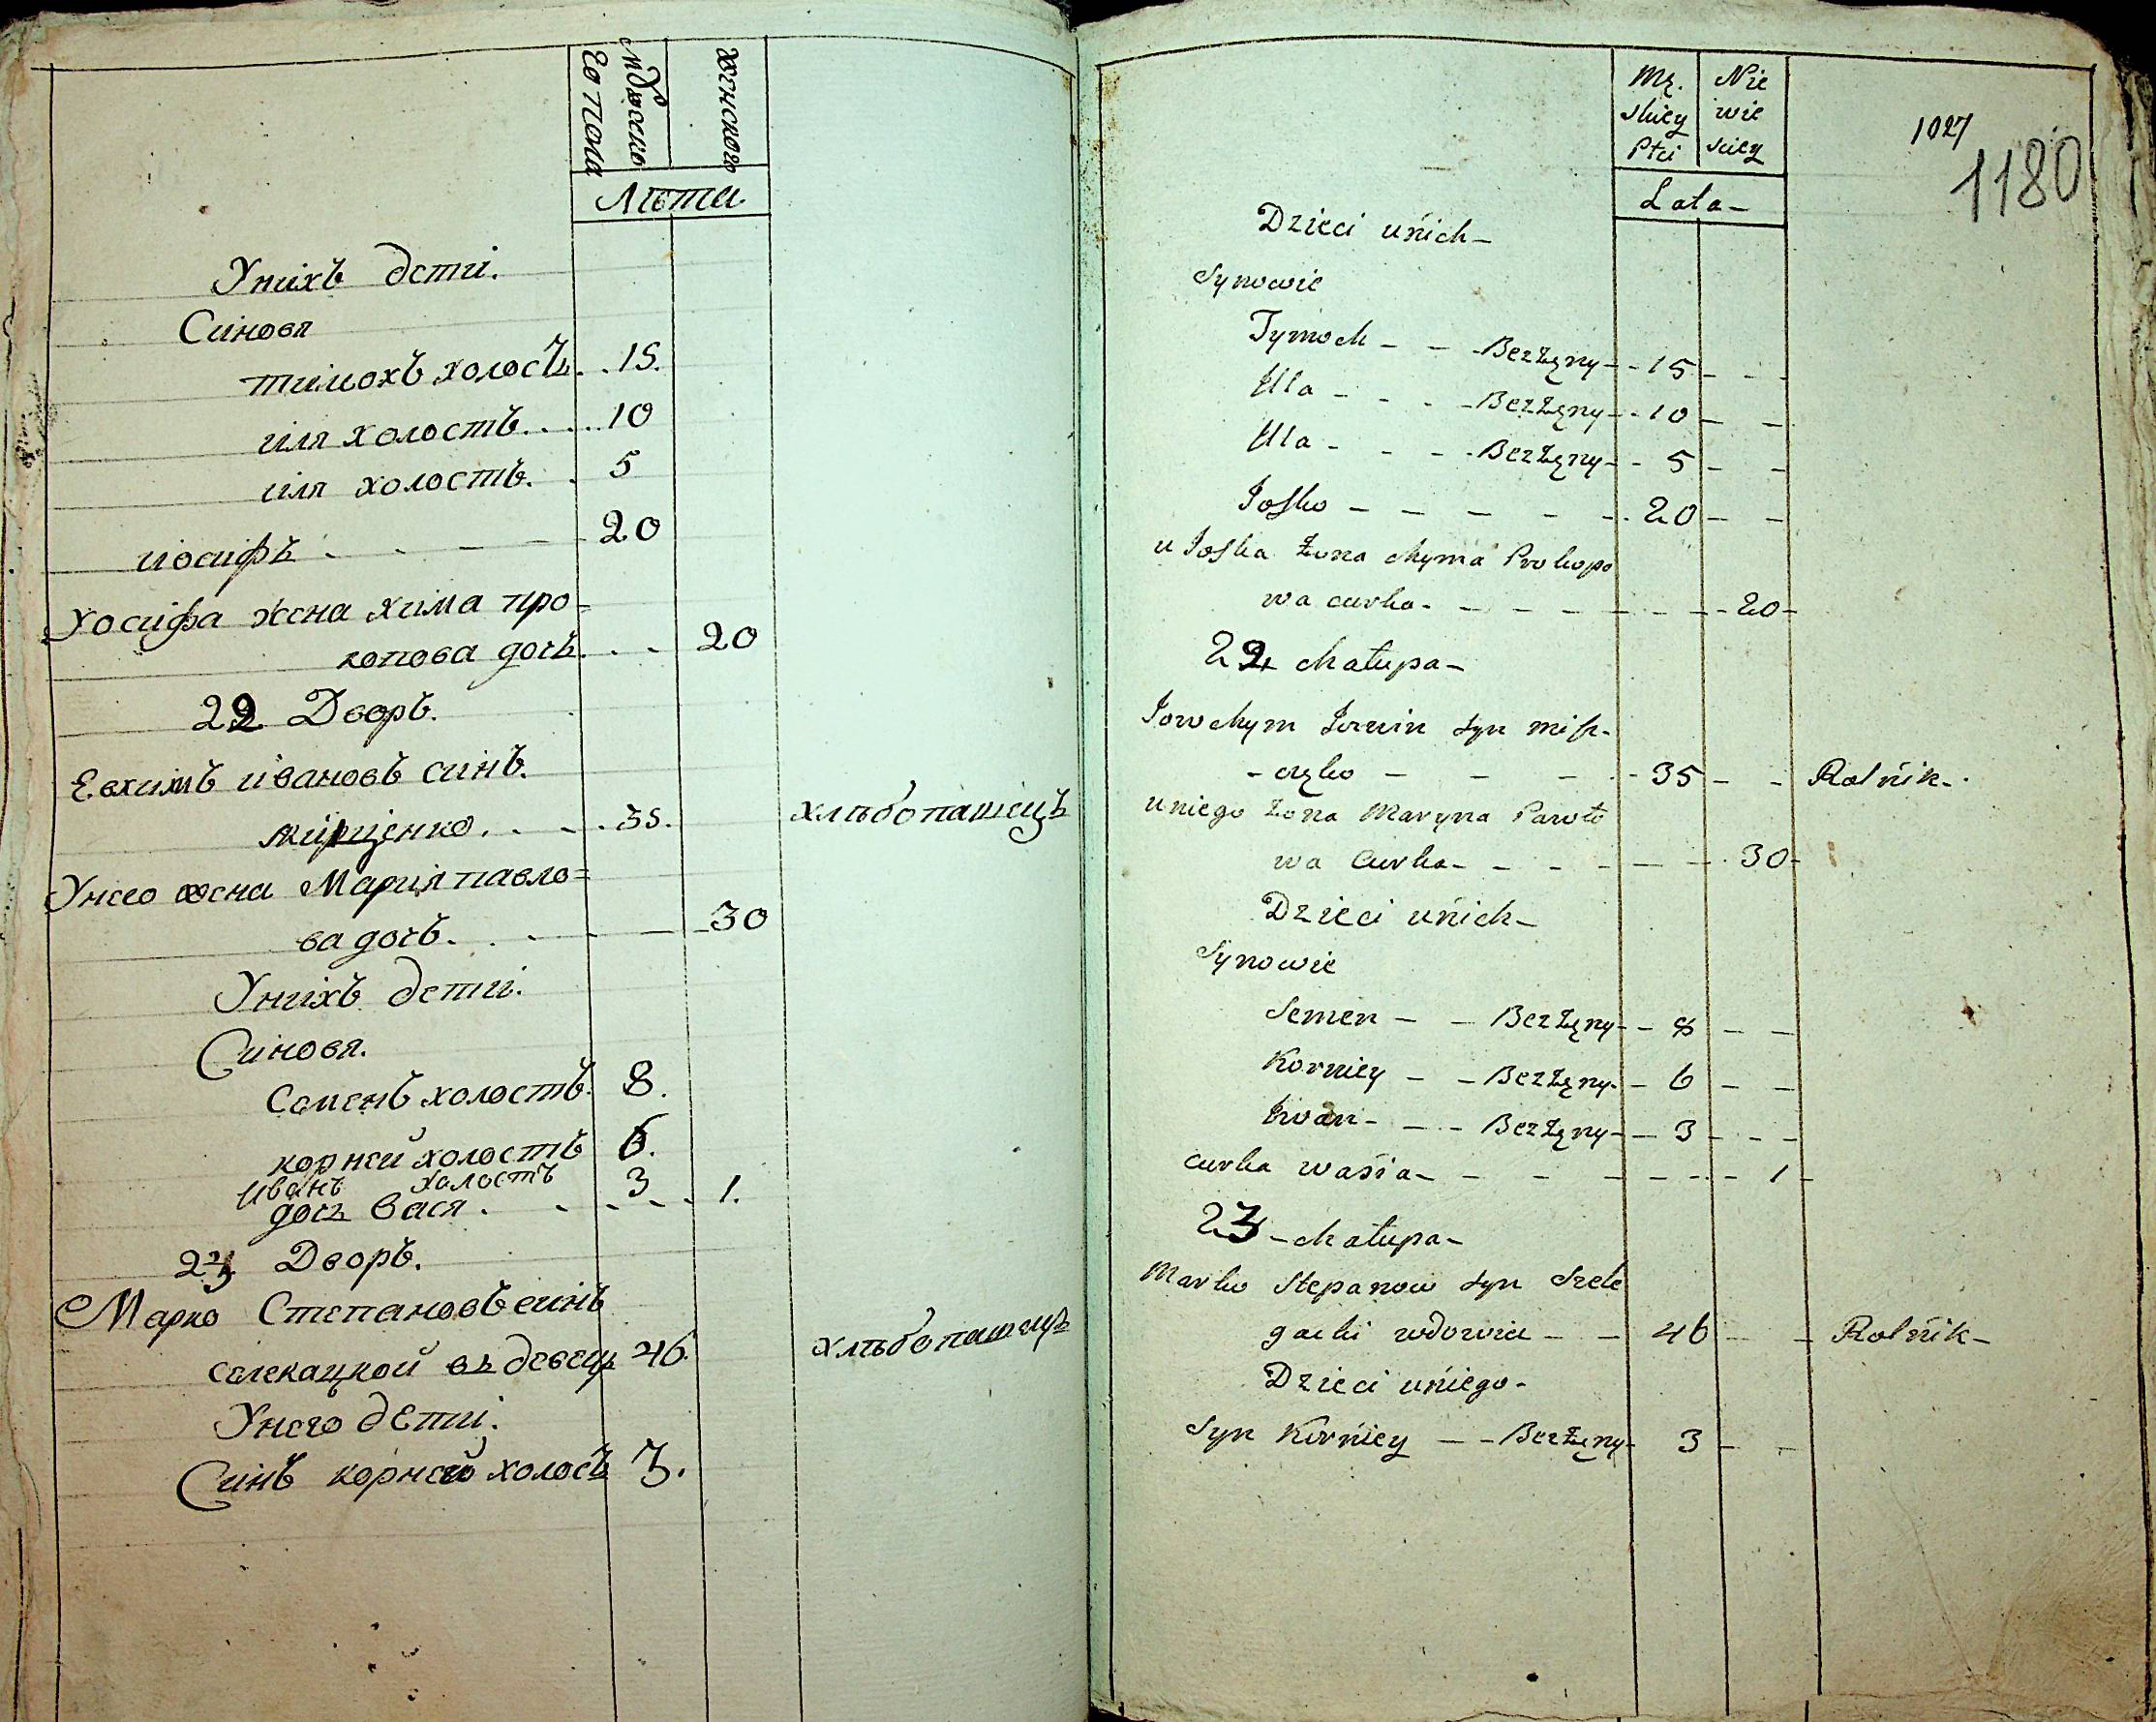 мужско
го пола
женского
Лѣта
Унихъ дети.
Синовя
тимохъ холостъ . . 15.
иля холостъ . . . . . 10
иля холостъ . . 5
иосифъ . - - - - 20
Уосифа жена хима про=
копова дочь . . - 20
22 Дворъ.
Евхимъ ивановъ синъ.
мищенко . . - . 35. хлѣбопашецъ
Унего жена Мария павло=
ва дочь . . - - - 30
Унихъ дети.
Синовя.
Семенъ холостъ . 8.
корней холостъ 6.
иванъ холостъ 3
дочь Вася . - - - - 1.
23 Дворъ.
Марко Степановъ синъ
селекацкой вдовецъ 46. хлѣбопашецъ
Унего дети.
Синъ корней холостъ 3.
Mę.
skiey
Płci
Nie
wie
sciey
1027
1180
Lata -
Dzieci unich -
Synowie
Tymoch - - - Bezżęny - - 15 - - -
Ila - - - - Bezżęny - - 10 - -
Ila - - - - Bezżęny - - 5 - -
Josko - - - - - - 20 - -
u Joska Żona chyma Prokopo
wa curka - - - - - - - - 20 -
22 chałupa -
Jowchym Iwanin syn misz-
- częko - - - - - 35 - - Rolnik -
uniego żona Maryna Pawło
wa Curka - - - - - - - 30 -
Dzieci unich -
Synowie
Semen - - Bezżęny - - 8 - -
Korniey - - Bezżęny - - 6 - -
Iwan - - - Bezżęny - - 3 - - -
curka wasia - - - - - - - 1 -
23 - chałupa -
Marko Stepanow syn Szele
gacki wdowiec - - 46 - - Rolnik -
Dzieci uniego -
Syn Korniey - - Bezżęny - 3 - -